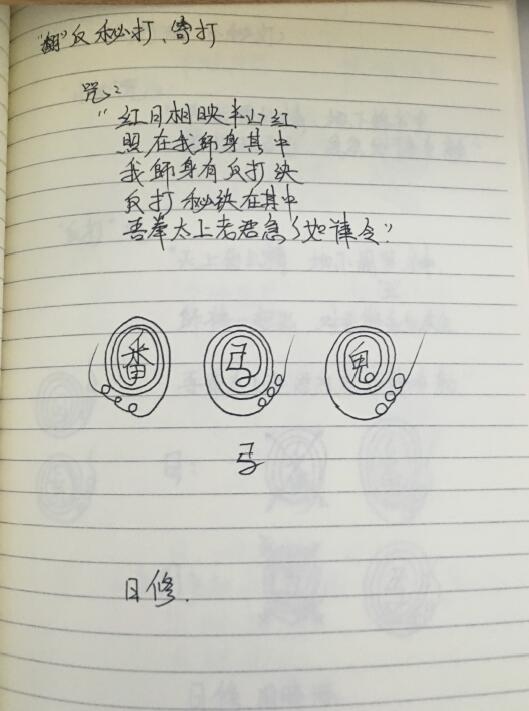 “翻”反秘打、寄打
咒：
“红日相映半边红
照在我师身其中
我师身有反打诀
反打秘诀在其中
吾奉太上老君急々如律令”
番 弓 鬼
弓
日修.